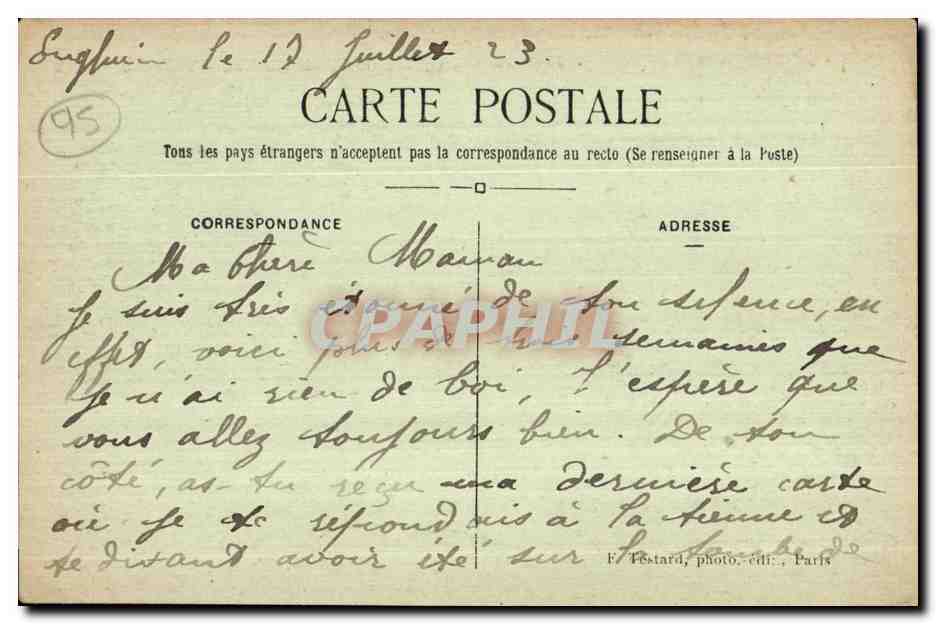 Enghien le 17 Juillet 23.
95
CARTE POSTALE
Tous les pays étrangers n'acceptent pas la correspondance au recto (Se renseigner à la Poste)
CORRESPONDANCE
ADRESSE
Ma Chère Maman
Je suis très étonné de ton silence, en
effet, voici plus de trois semaines que
je n'ai rien de toi, J'espère que
vous allez toujours bien. De ton
côté, as-tu reçu ma dernière carte
où je te répondais à la tienne et
te disant avoir été sur la tombe de
F. Testard, photo.-édit., Paris
CPAPHIL